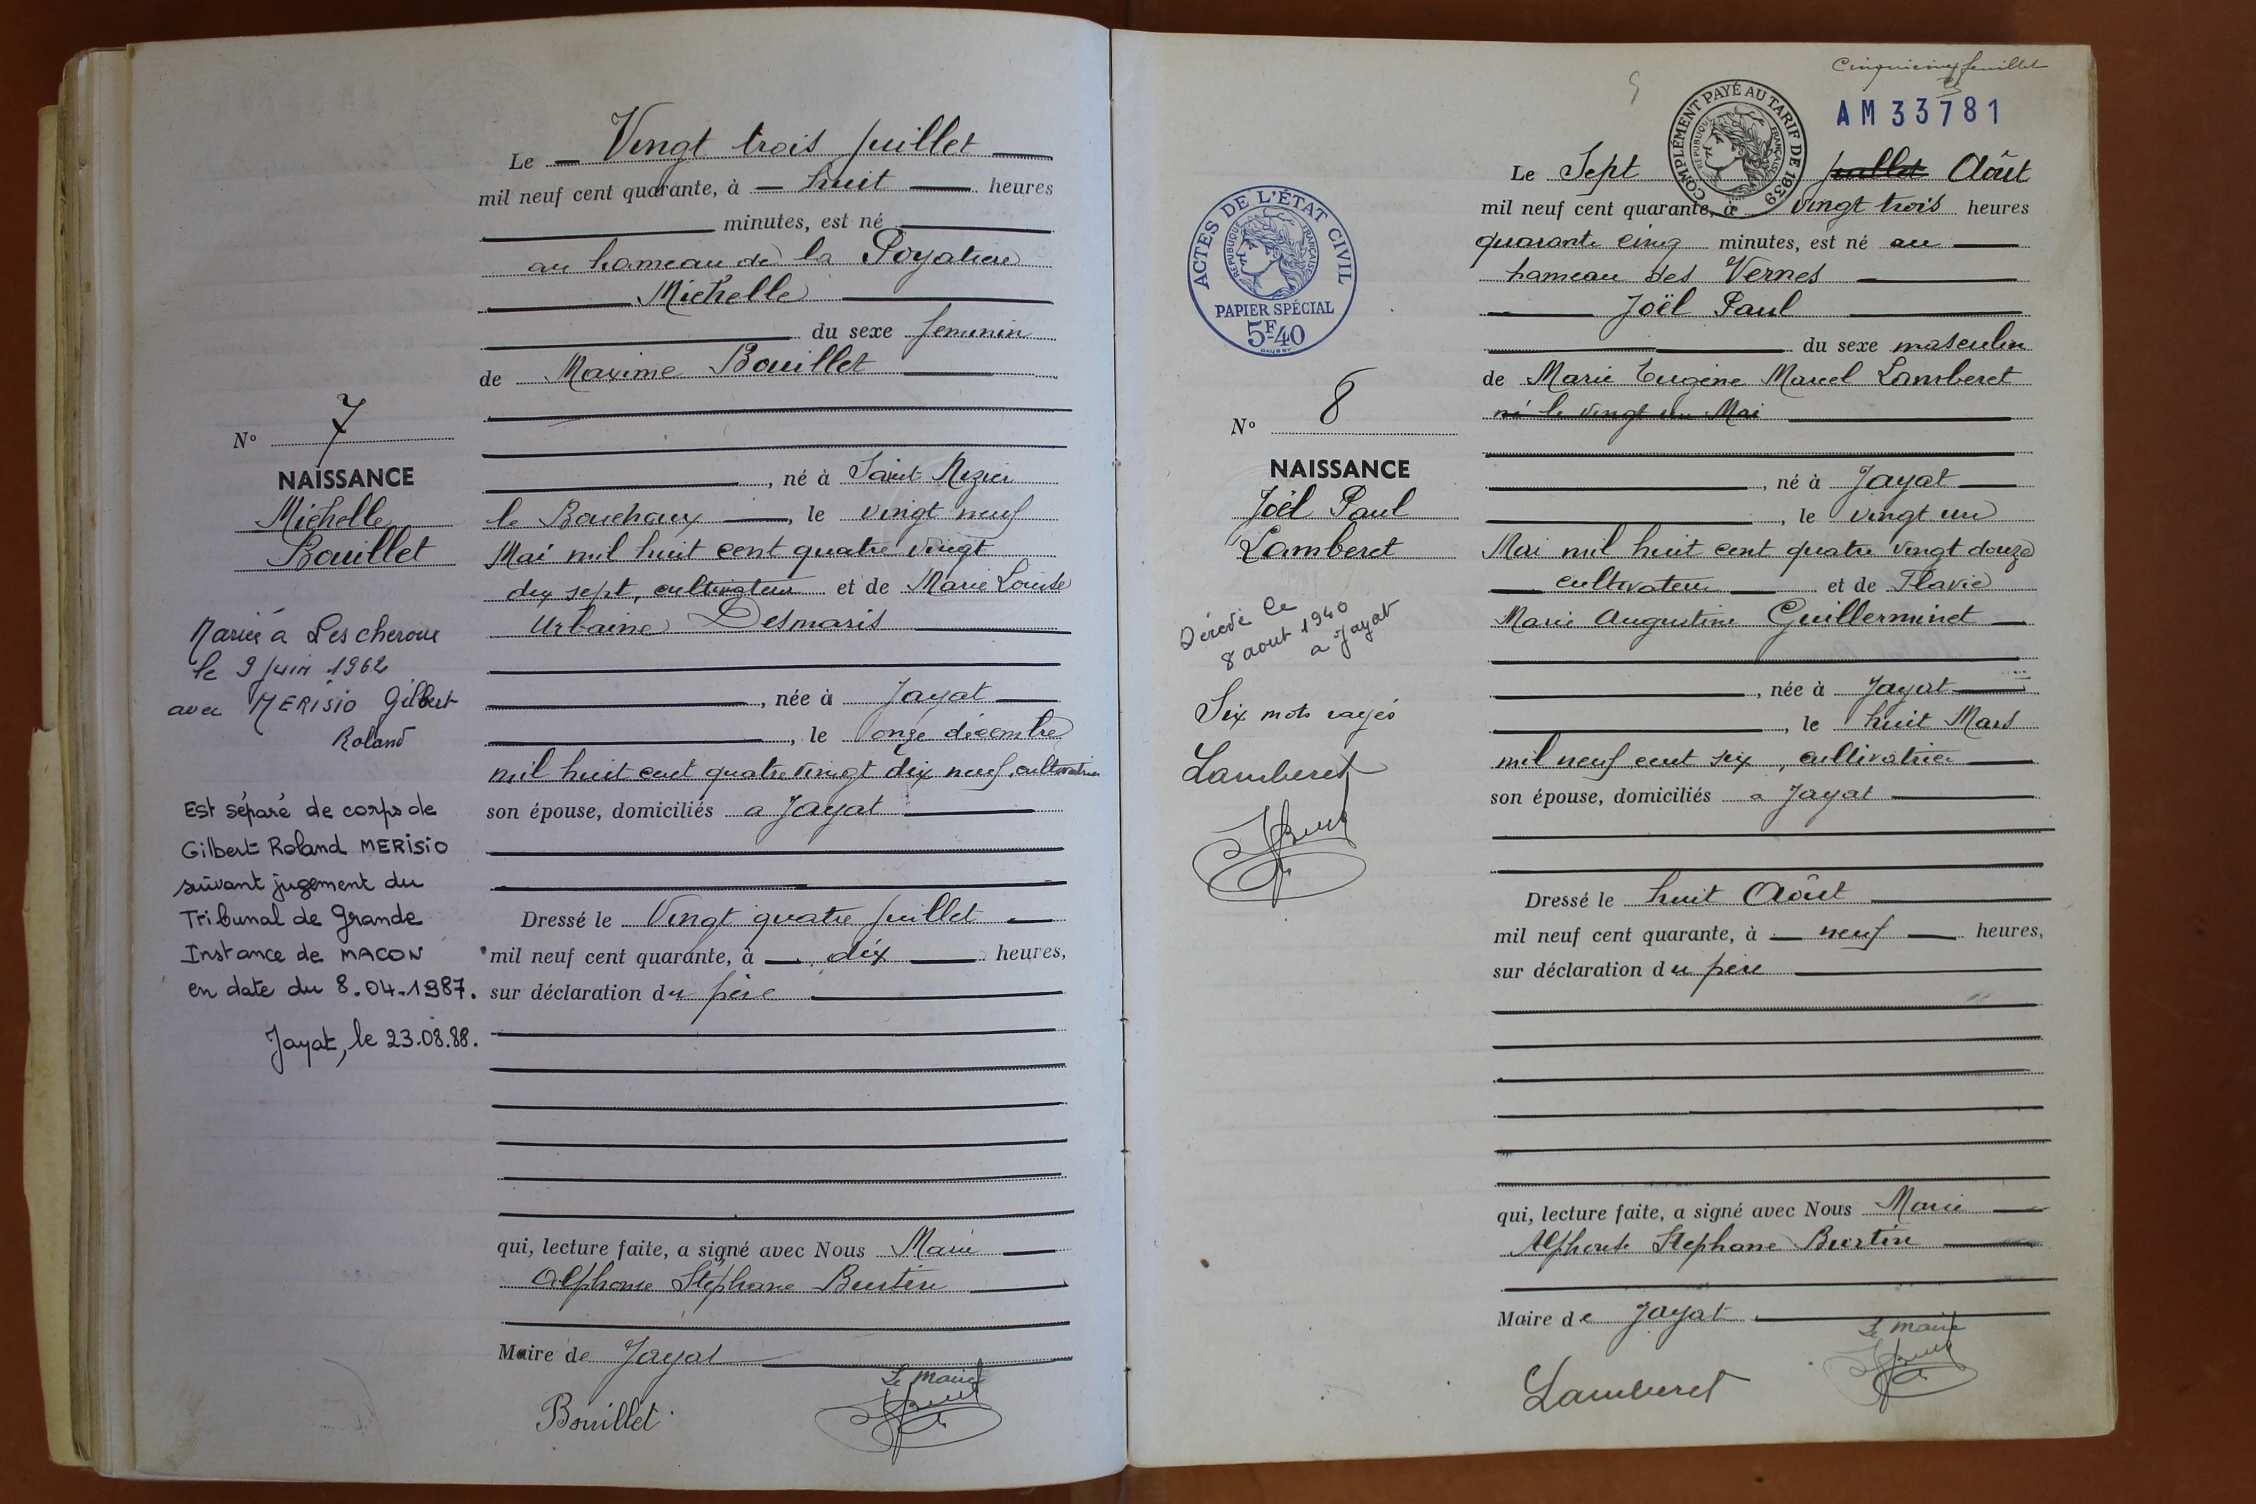 Le Vingt trois juillet
mil neuf cent quarante, à huit heures
minutes, est né
au hameau de la Poyatiere
Michelle
du sexe feminin
de Maxime Bouillet
N° 7
NAISSANCE
Michelle
Bouillet
, né à Saint Nizier
le Bouchoux, le vingt neuf
Mai mil huit cent quatre vingt
dix sept, cultivateur et de Marie Louise
Urbaine Desmaris
, née à Jayat
, le onze décembre
mil huit cent quatre vingt dix neuf, cultivatrice
son épouse, domiciliés a Jayat
Dressé le Vingt quatre juillet
mil neuf cent quarante, à dix heures,
sur déclaration du père
qui, lecture faite, a signé avec Nous Marie
Alphonse Stéphane Burtin
Maire de Jayat
Le Maire
Bouillet
Mariée à Lescheroux
le 9 Juin 1962
avec MERISIO Gilbert
Roland
Est séparé de corps de
Gilbert Roland MERISIO
suivant jugement du
Tribunal de Grande
Instance de MACON
en date du 8.04.1987.
Jayat, le 23.08.88.
Cinquième feuillet
AM 33781
COMPLÉMENT PAYÉ AU TARIF DE 1939
RÉPUBLIQUE FRANÇAISE
ACTES DE L'ÉTAT CIVIL
RÉPUBLIQUE FRANÇAISE
PAPIER SPÉCIAL
5F40
Le Sept juillet Août
mil neuf cent quarante, à vingt trois heures
quarante cinq minutes, est né au
hameau des Vernes
Joël Paul
du sexe masculin
de Marie Eugène Marcel Lamberet
né le vingt un Mai
N° 8
NAISSANCE
Joël Paul
Lamberet
, né à Jayat
, le vingt un
Mai mil huit cent quatre vingt douze
cultivateur et de Flavie
Marie Augustine Guillerminet
, née à Jayat
, le huit Mars
mil neuf cent six, cultivatrice
son épouse, domiciliés a Jayat
Dressé le huit Août
mil neuf cent quarante, à neuf heures,
sur déclaration du père
qui, lecture faite, a signé avec Nous Marie
Alphonse Stephane Burtin
Maire de Jayat
Le Maire
Lamberet
Décédé le
8 aout 1940
a Jayat
Six mots rayés
Lamberet